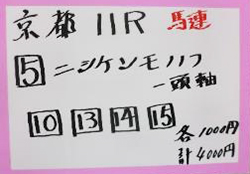 京都 11R 馬連
5 ニシケンモノノフ
一頭軸
10 13 14 15
各1000円
計4000円